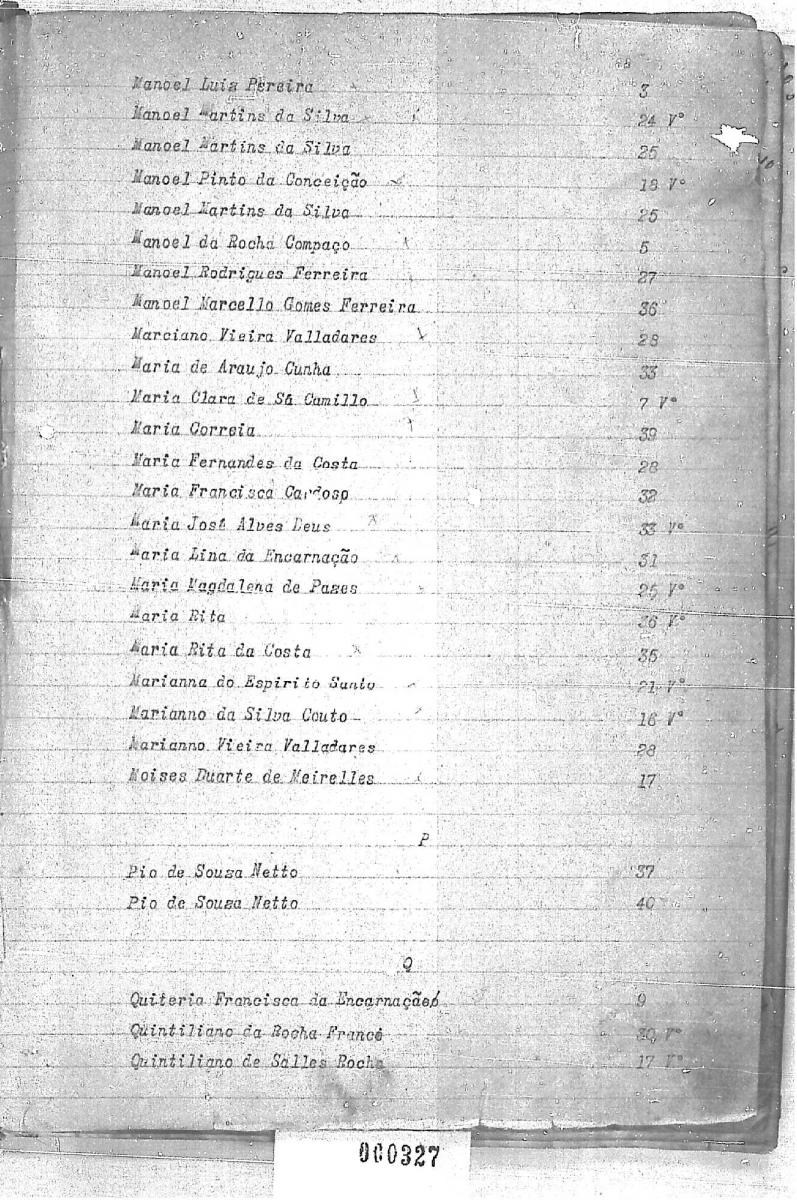 Manoel Luiz Pereira 3
Manoel Martins da Silva 24 Vº
Manoel Martins da Silva 25
Manoel Pinto da Conceição 18 Vº
Manoel Martins da Silva 25
Manoel da Rocha Compaço 5
Manoel Rodrigues Ferreira 27
Manoel Marcello Gomes Ferreira 36
Marciano Vieira Valladares 28
Maria de Araujo Cunha 33
Maria Clara de Sá Camillo 7 Vº
Maria Correia 39
Maria Fernandes da Costa 28
Maria Francisca Cardoso 32
Maria José Alves Deus 33 Vº
Maria Lina da Encarnação 31
Maria Magdalena de Pazes 25 Vº
Maria Rita 36 Vº
Maria Rita da Costa 35
Marianna do Espirito Santo 21 Vº
Marianno da Silva Couto 16 Vº
Marianno Vieira Valladares 28
Moises Duarte de Meirelles 17
P
Pio de Souza Netto 37
Pio de Souza Netto 40
Q
Quiteria Francisca da Encarnação 9
Quintiliano da Rocha Franco 30 Vº
Quintiliano de Salles Rocha 17 Vº
000327